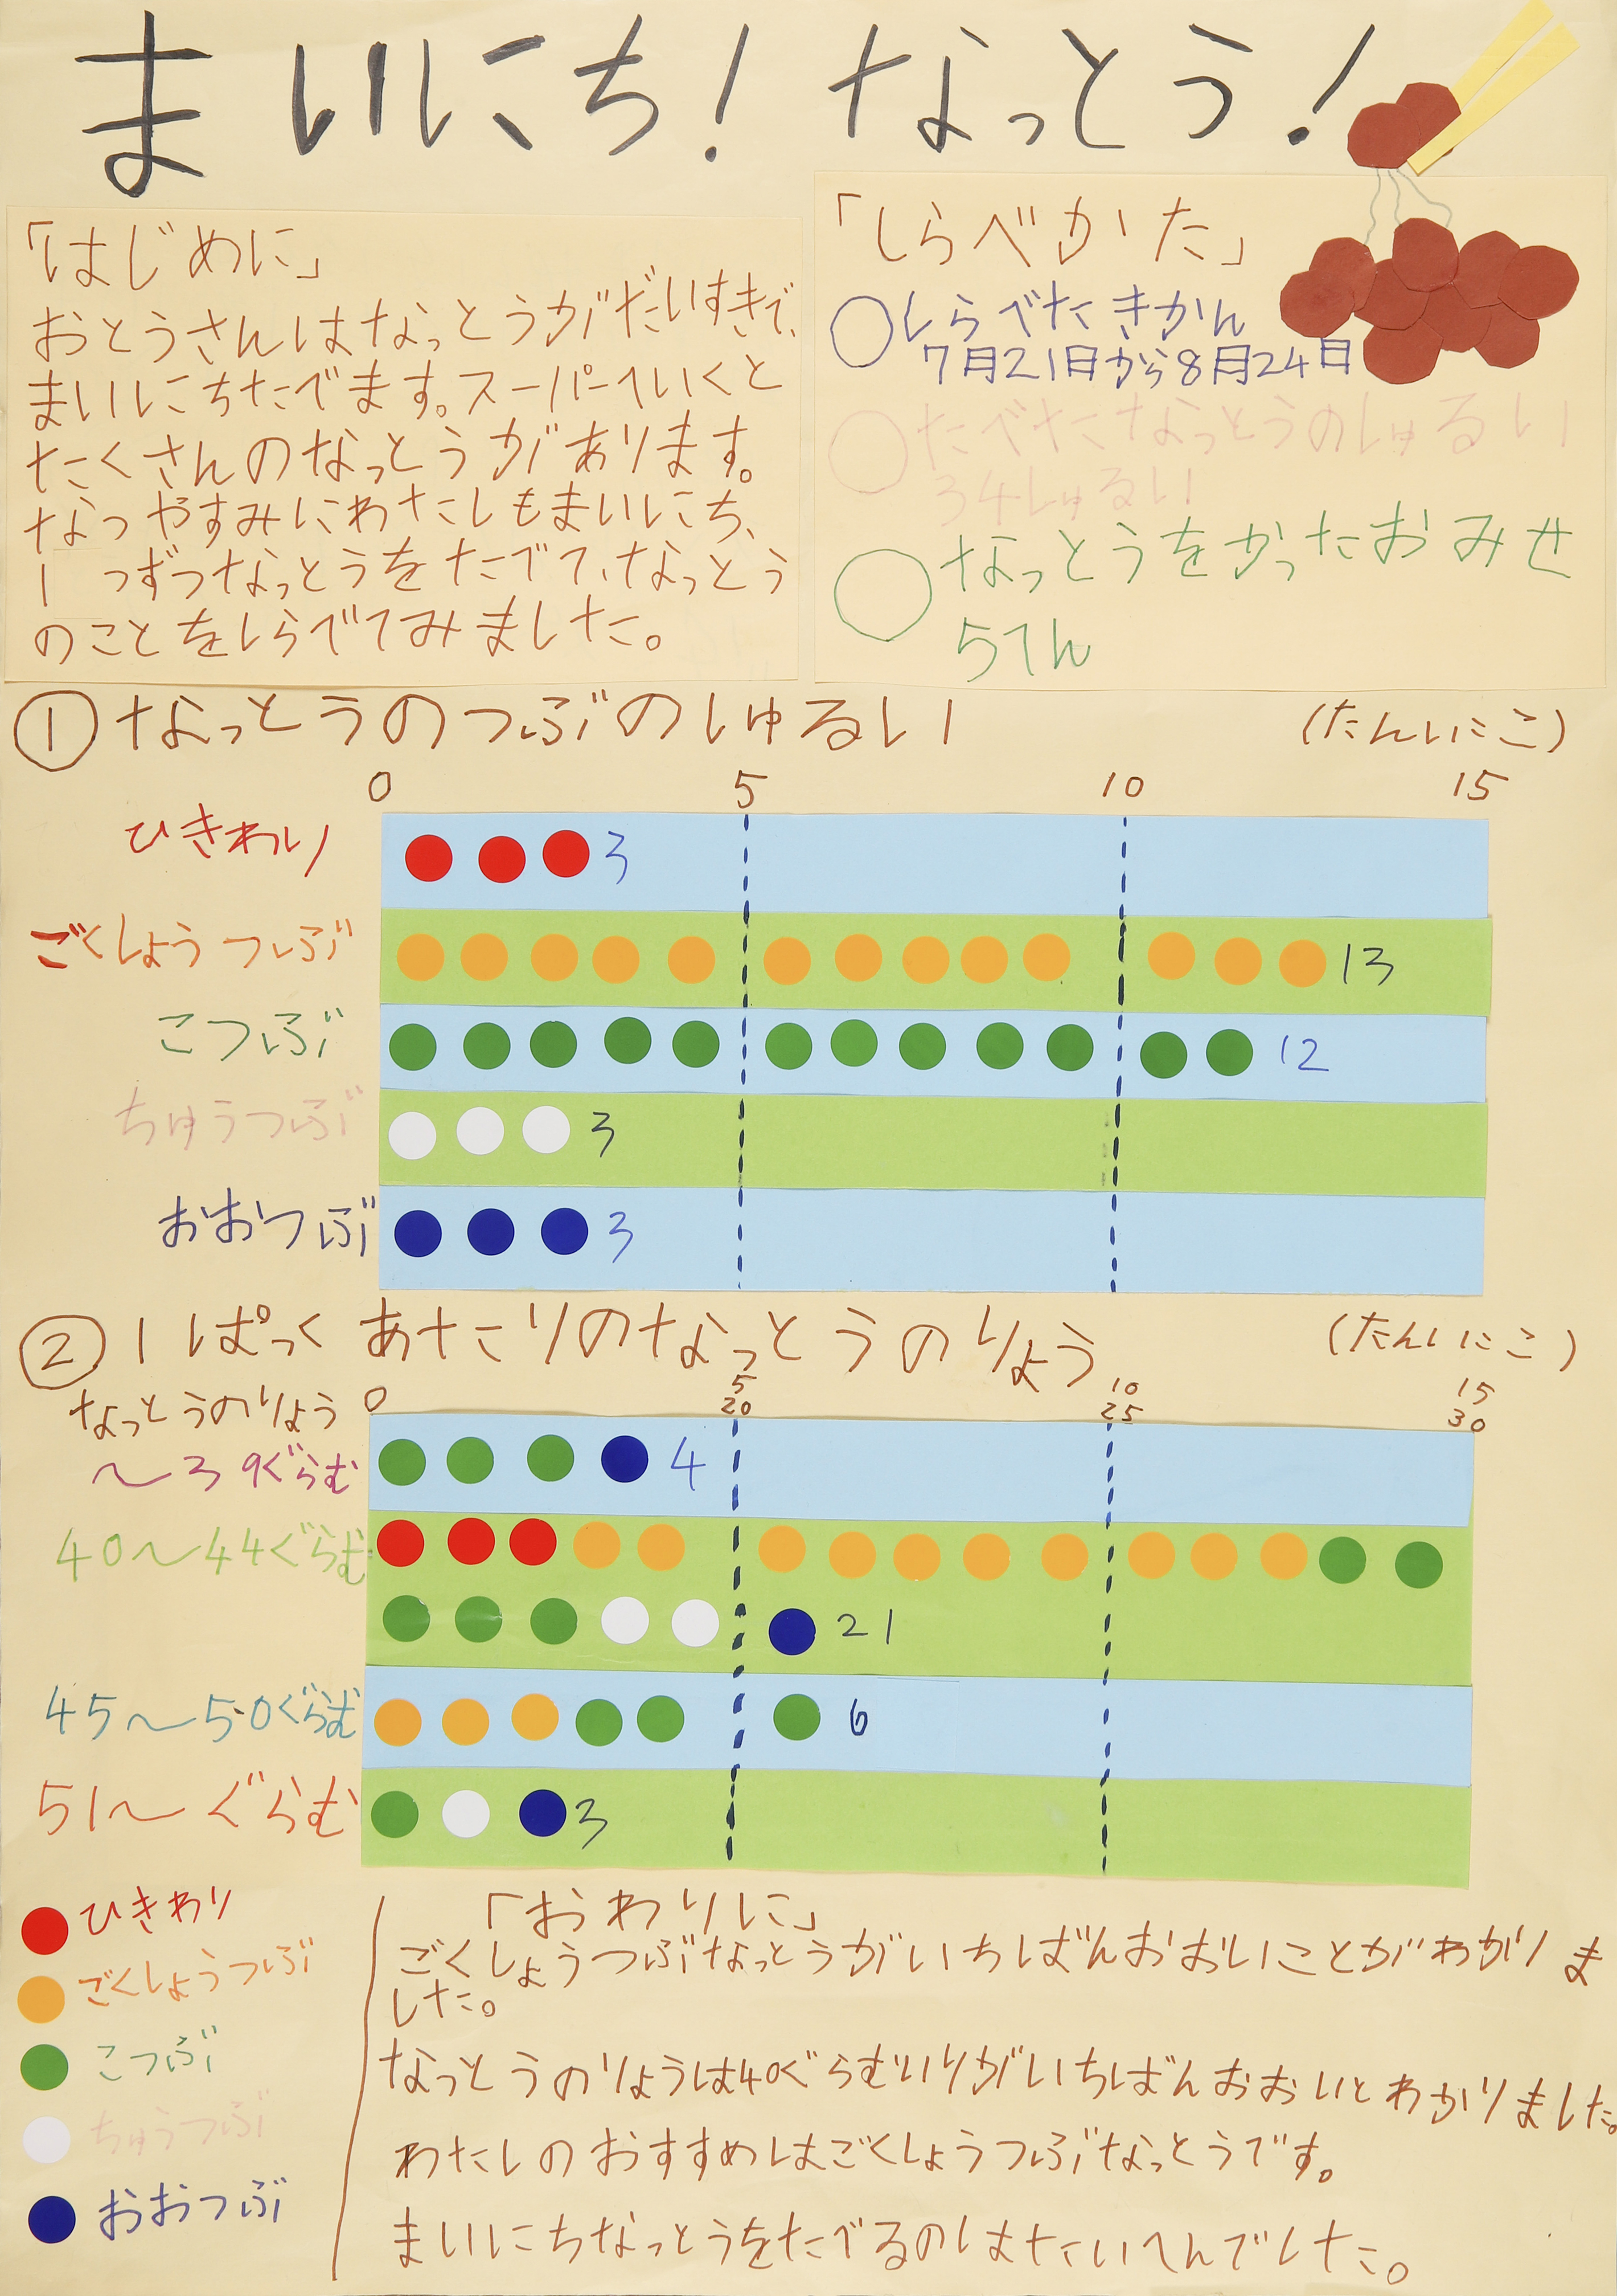 まいにち!なっとう!
「はじめに」
おとうさんはなっとうがだいすきで、
まいにちたべます。スーパーへいくと
たくさんのなっとうがあります。
なつやすみにわたしもまいにち、
1つずつなっとうをたべて、なっとう
のことをしらべてみました。
「しらべかた」
○しらべたきかん
7月21日から8月24日
○たべたなっとうのしゅるい
34しゅるい
○なっとうをかったおみせ
5てん
①なっとうのつぶのしゅるい (たんいこ)
0 5 10 15
ひきわり 3
ごくしょうつぶ 13
こつぶ 12
ちゅうつぶ 3
おおつぶ 3
②1ぱっくあたりのなっとうのりょう (たんいこ)
なっとうのりょう 0 5 10 15
20 25 30
~39ぐらむ 4
40~44ぐらむ
21
45~50ぐらむ 6
51~ぐらむ 3
ひきわり
ごくしょうつぶ
こつぶ
ちゅうつぶ
おおつぶ
「おわりに」
ごくしょうつぶなっとうがいちばんおおいことがわかりま
した。
なっとうのりょうは40ぐらむいりがいちばんおおいとわかりました。
わたしのおすすめはごくしょうつぶなっとうです。
まいにちなっとうをたべるのはたいへんでした。